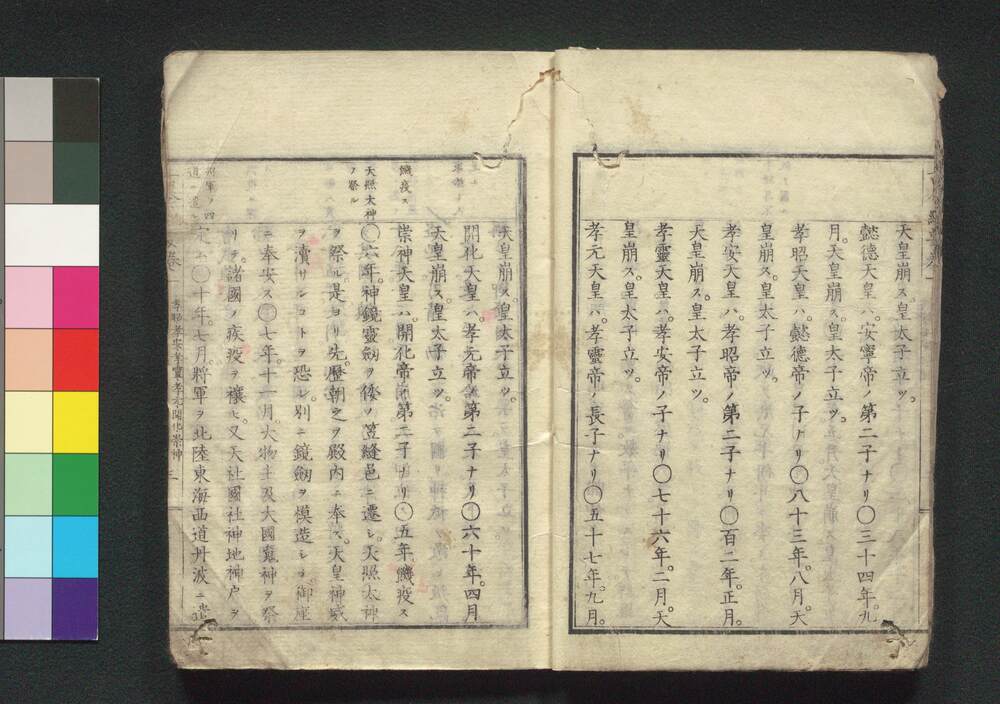 天皇崩ス。皇太子立ツ。
懿德天皇ハ。安寧帝ノ第二子ナリ〇三十四年。九
月。天皇崩ス。皇太子立ツ。
孝昭天皇ハ。懿德帝ノ子ナリ〇八十三年。八月。天
皇崩ス。皇太子立ツ。
孝安天皇ハ。孝昭帝ノ第二子ナリ〇百二年。正月。
天皇崩ス。皇太子立ツ。
孝靈天皇ハ。孝安帝ノ子ナリ〇七十六年。二月。天
皇崩ス。皇太子立ツ。
孝元天皇ハ。孝靈帝ノ長子ナリ〇五十七年。九月。
天皇崩ス。皇太子立ツ。
開化天皇ハ。孝元帝ノ第二子ナリ〇六十年。四月
天皇崩ス。皇太子立ツ。
饑疫ス
崇神天皇ハ。開化帝ノ第二子ナリ〇五年。饑疫ス
天照大神
ヲ祭ル
〇六年。神鏡靈劔ヲ倭ノ笠縫邑ニ遷シ。天照太神
ヲ祭ル。是ヨリ先。歷朝之ヲ殿内ニ奉ス。天皇神威
ヲ瀆サンコトヲ恐レ。別ニ鏡劔ヲ模造シテ御座
ニ奉安ス〇七年。十一月。大物主及大國魂神ヲ祭
リテ。諸國ノ疾疫ヲ禳ヒ。又天社國社神地神戶ヲ
將軍ヲ四
道ニ遣ス
定ム〇十年。七月。將軍ヲ北陸東海西道丹波ニ遣
孝昭孝安孝靈孝元開化崇神
三